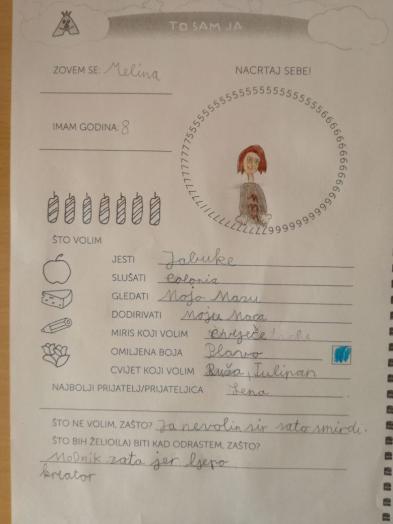 TO SAM JA
ZOVEM SE: Melina
NACRTAJ SEBE!
IMAM GODINA: 8
ŠTO VOLIM
JESTI Jabuke
SLUŠATI
GLEDATI Moja Mamu
DODIRIVATI Moju Maca
MIRIS KOJI VOLIM cvijeće
OMILJENA BOJA Plavo
CVIJET KOJI VOLIM Ruža, Tulipan
NAJBOLJI PRIJATELJ/PRIJATELJICA Lena
ŠTO NE VOLIM, ZAŠTO? Ja nevolin sir zato smirdi.
ŠTO BIH ŽELIO(LA) BITI KAD ODRASTEM, ZAŠTO?
Modnik zata jer ljepo
kreator